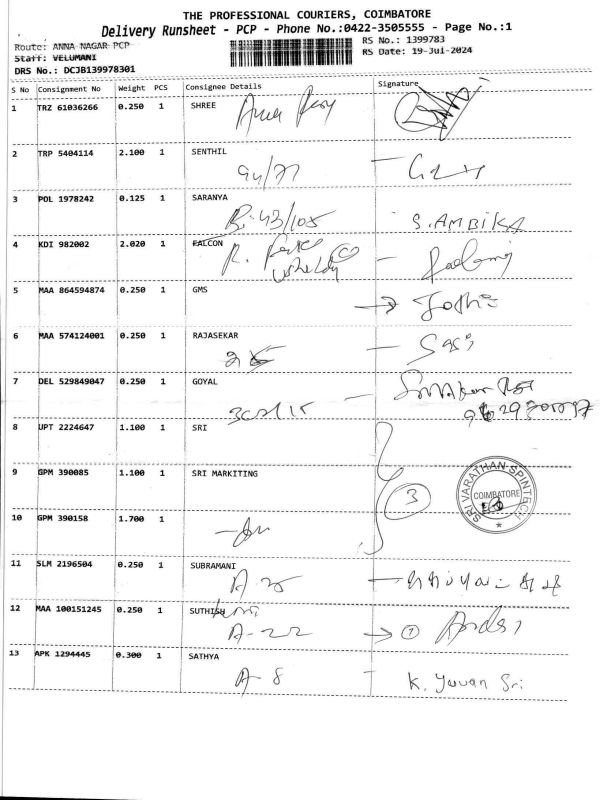 THE PROFESSIONAL COURIERS, COIMBATORE
Delivery Runsheet - PCP - Phone No.:0422-3505555 - Page No.:1
Route: ANNA NAGAR PCP
RS No.: 1399783
Staff: VELUMANI
RS Date: 19-Jul-2024
DRS No.: DCJB139978301
S No Consignment No Weight PCS Consignee Details Signature
1 TRZ 61036266 0.250 1 SHREE
2 TRP 5404114 2.100 1 SENTHIL
94/77
3 POL 1978242 0.125 1 SARANYA
B. 43/105 S. AMBIKA
4 KDI 982002 2.020 1 FALCON
5 MAA 864594874 0.250 1 GMS
6 MAA 574124001 0.250 1 RAJASEKAR
7 DEL 529849047 0.250 1 GOYAL
8 UPT 2224647 1.100 1 SRI
9 GPM 390085 1.100 1 SRI MARKITING
3
SRI VARATHAN SPINTECH
COIMBATORE
10 GPM 390158 1.700 1
11 SLM 2196504 0.250 1 SUBRAMANI
12 MAA 100151245 0.250 1 SUTHISH
A-22
13 APK 1294445 0.300 1 SATHYA
A-8 K. Yuvan Sri